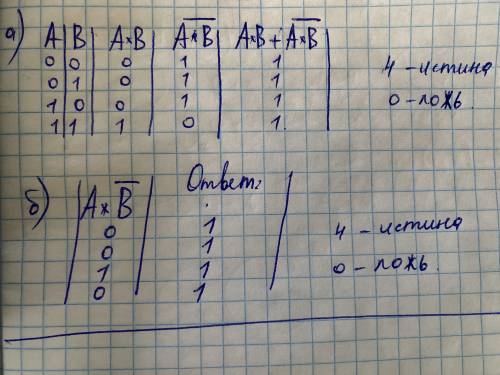 а) A B A*B A̅*̅B̅ A*B + A̅*̅B̅
0 0 0 1 1
0 1 0 1 1 4 - истина
1 0 0 1 1 0 - ложь.
1 1 1 0 1.
б) A * B̅ Ответ:
0 1
0 1 4 - истина
1 1 0 - ложь.
0 1